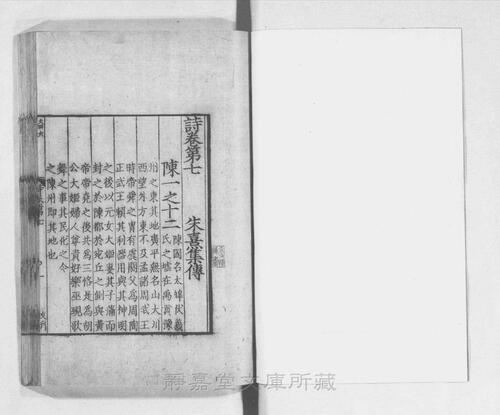 詩卷第七
朱熹集傳
陳一之十二
陳國名太皞伏羲
氏之墟在禹貢豫
州之東其地廣平無名山大川
西望外方東不及孟諸周武王
時帝舜之胄有虞閼父為周陶
正武王賴其利器用與其神明
之後以元女大姬妻其子滿而
封之於陳都於宛丘之側與黃
帝帝堯之後共為三恪是為胡
公大姬婦人尊貴好樂巫覡歌
舞之事其民化之今
之陳州即其地也
靜嘉堂文庫所藏